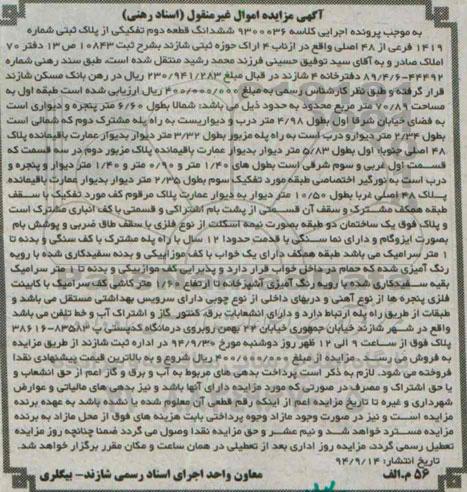 آگهی مزایده اموال غیرمنقول (اسناد رهنی)
به موجب پرونده اجرایی کلاسه ۹۳۰۰۰۳۶ ششدانگ قطعه دوم تفکیکی از پلاک ثبتی شماره
۱۴۱۹ فرعی از ۴۸ اصلی واقع در ارناب ۴ اراک حوزه ثبتی شازند بشرح ثبت ۱۰۸۴۳ ص ۱۳ دفتر ۷۰
املاک صادر و به آقای سید توفیق حسینی فرزند محمد رشید منتقل شده است، طبق سند رهنی شماره
۸۹/۴/۶-۴۴۴۹۲ دفترخانه ۴ شازند در قبال مبلغ ۲۳۰/۹۴۱/۲۸۳ ریال در رهن بانک مسکن شازند
قرار گرفته و طبق نظر کارشناس رسمی به مبلغ ۴۰۰/۰۰۰/۰۰۰ ریال ارزیابی شده است طبقه اول به
مساحت ۷۰/۸۹ متر مربع محدود به حدود ذیل می باشد: شمالا بطول ۶/۶۰ متر پنجره و دیواری است
به فضای خیابان شرقا اول بطول ۴/۹۸ متر درب و دیواریست به راه پله مشترک دوم که شمالی است
بطول ۲/۳۴ متر دیوارو درب است به راه پله مزبور بطول ۳/۳۲ متر دیوار بدیوار عمارت باقیمانده پلاک
۴۸ اصلی جنوبا، اول بطول ۵/۸۳ متر دیوار بدیوار عمارت باقیمانده پلاک مزبور دوم در سه قسمت که
قسمت اول غربی و سوم شرقی است بطول های ۱/۴۰ متر و ۰/۹۰ متر و ۱/۴۰ متر دیوار و پنجره و
درب است به نورگیر اختصاصی طبقه مورد تفکیک سوم بطول ۲/۳۵ متر دیوار بدیوار عمارت باقیمانده
پلاک ۴۸ اصلی غربا بطول ۱۰/۵۰ متر دیوار به دیوار عمارت پلاک مرقوم کف مورد تفکیک با سقف
طبقه همکف مشترک و سقف آن قسمتی از پشت بام اشتراکی و قسمتی با کف انباری مشترک است
و پلاک فوق یک ساختمان دو طبقه بصورت نیمه اسکلت از نوع فلزی با سقف طاق ضربی و پوشش بام
بصورت ایزوگام و دارای نما سنگی با قدمت حدودا ۱۲ سال با راه پله مشترک با کف سنگی و بدنه تا
۱ متر سرامیک می باشد طبقه همکف دارای یک خواب با کف موزاییکی و بدنه سفیدکاری شده با رویه
رنگ آمیزی شده که حمام در داخل خواب قرار دارد و پذیرایی کف موزاییکی و بدنه تا ۱ متر سرامیک
بقیه سفیدکاری شده با رویه رنگ آمیزی آشپزخانه تا ارتفاع ۱/۶۰ متر کاشی کف سرامیک با کابینت
فلزی پنجره ها از نوع آهنی و دربهای داخلی از نوع چوبی دارای سرویس بهداشتی مستقل می باشد و
طبقات از طریق راه پله ارتباط دارد و دارای انشعابات برق، کنتور گاز و اشتراک آب و خط تلفن می باشد
واقع در شهر شازند خیابان جمهوری خیابان ۲۲ بهمن روبروی درمانگاه کدپستی ۸۳۵۸۳-۳۸۶۱۶
پلاک فوق از ساعت ۹ الی ۱۲ ظهر روز دوشنبه مورخ ۹۴/۹/۳۰ در اداره ثبت شازند از طریق مزایده
به فروش میرسد. مزایده از مبلغ ۴۰۰/۰۰۰/۰۰۰ ریال شروع و به بالاترین قیمت پیشنهادی نقدا
فروخته می شود. لازم به ذکر است پرداخت بدهی های مربوط به آب و برق و گاز اعم از حق انشعاب و
یا حق اشتراک و مصرف در صورتی که مورد مزایده دارای آنها باشد و نیز بدهی های مالیاتی و عوارض
شهرداری و غیره تا تاریخ مزایده اعم از اینکه رقم قطعی آن معلوم شده یا نشده باشد به عهده برنده
مزایده است و نیز در صورت وجود مازاد وجوه پرداختی بابت هزینه های فوق از محل مازاد به برنده
مزایده مسترد خواهد شد و نیم عشر و حق مزایده نقدا وصول می گردد ضمنا چنانچه روز مزایده
تعطیل رسمی گردد، مزایده روز اداری بعد از تعطیلی در همان ساعت و مکان مقرر برگزار خواهد شد.
تاریخ انتشار: ۹۴/۹/۱۴
۵۶ م.الف معاون واحد اجرای اسناد رسمی شازند- بیکلری